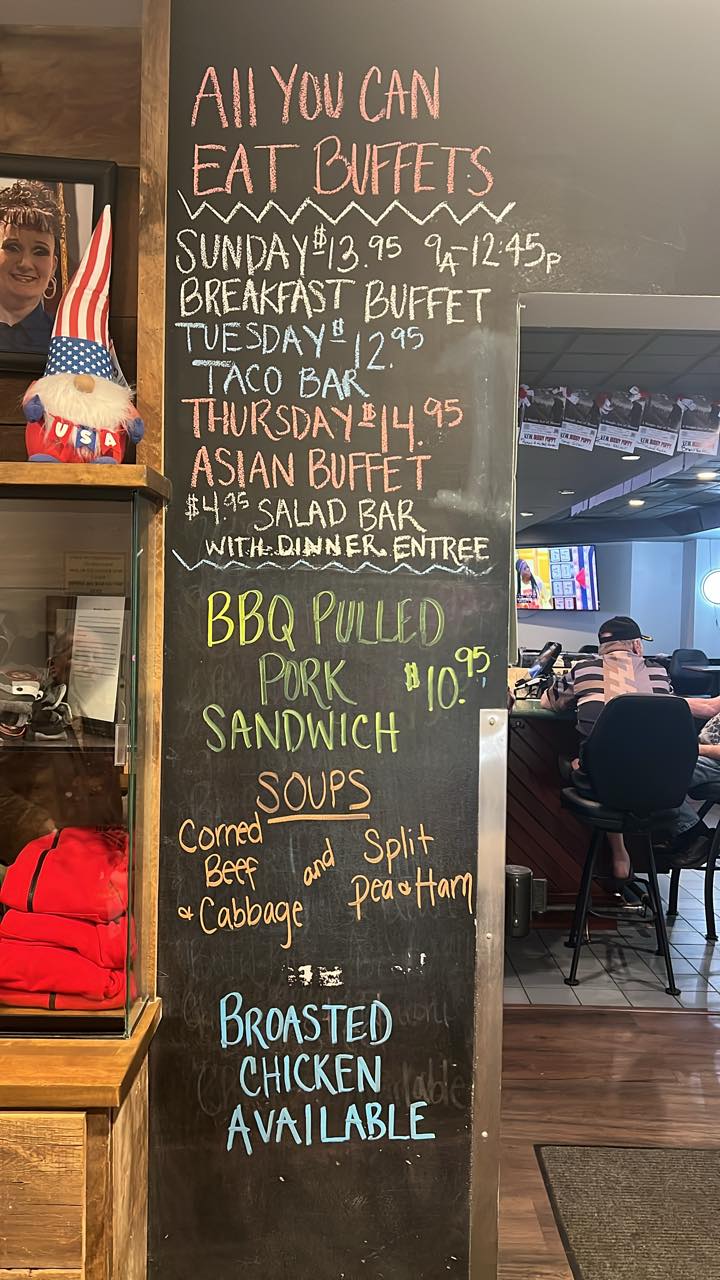 All YOU CAN
EAT BUFFETS
SUNDAY $13.95 9A-12:45P
BREAKFAST BUFFET
TUESDAY $12.95
TACO BAR
THURSDAY $14.95
ASIAN BUFFET
$4.95 SALAD BAR
WITH DINNER ENTREE
BBQ PULLED
PORK $10.95
SANDWICH
SOUPS
Corned
Beef
& Cabbage
and
Split
Pea & Ham
BROASTED
CHICKEN
AVAILABLE
USA